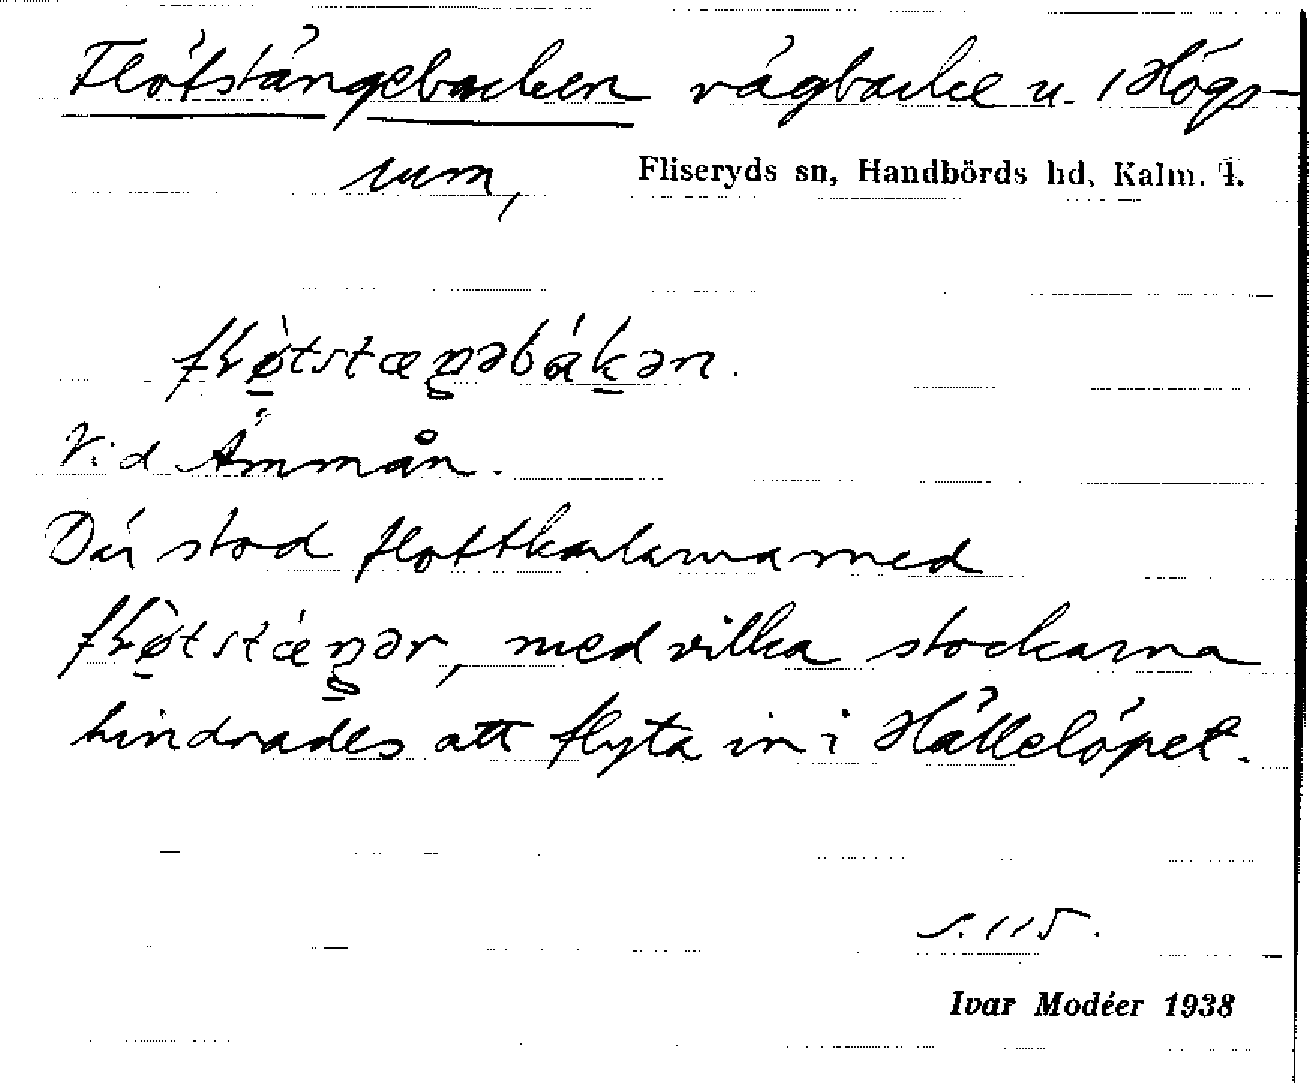 Flötstängebacken vägbacke u. 1 Högs-
rum, Fliseryds sn, Handbörds hd, Kalm. l.
Vid Ämmån.
Där stod flottkarlarna med
med vilka stockarna
hindrades att flyta in i Hällelöpet.
s. 115.
Ivar Modéer 1938